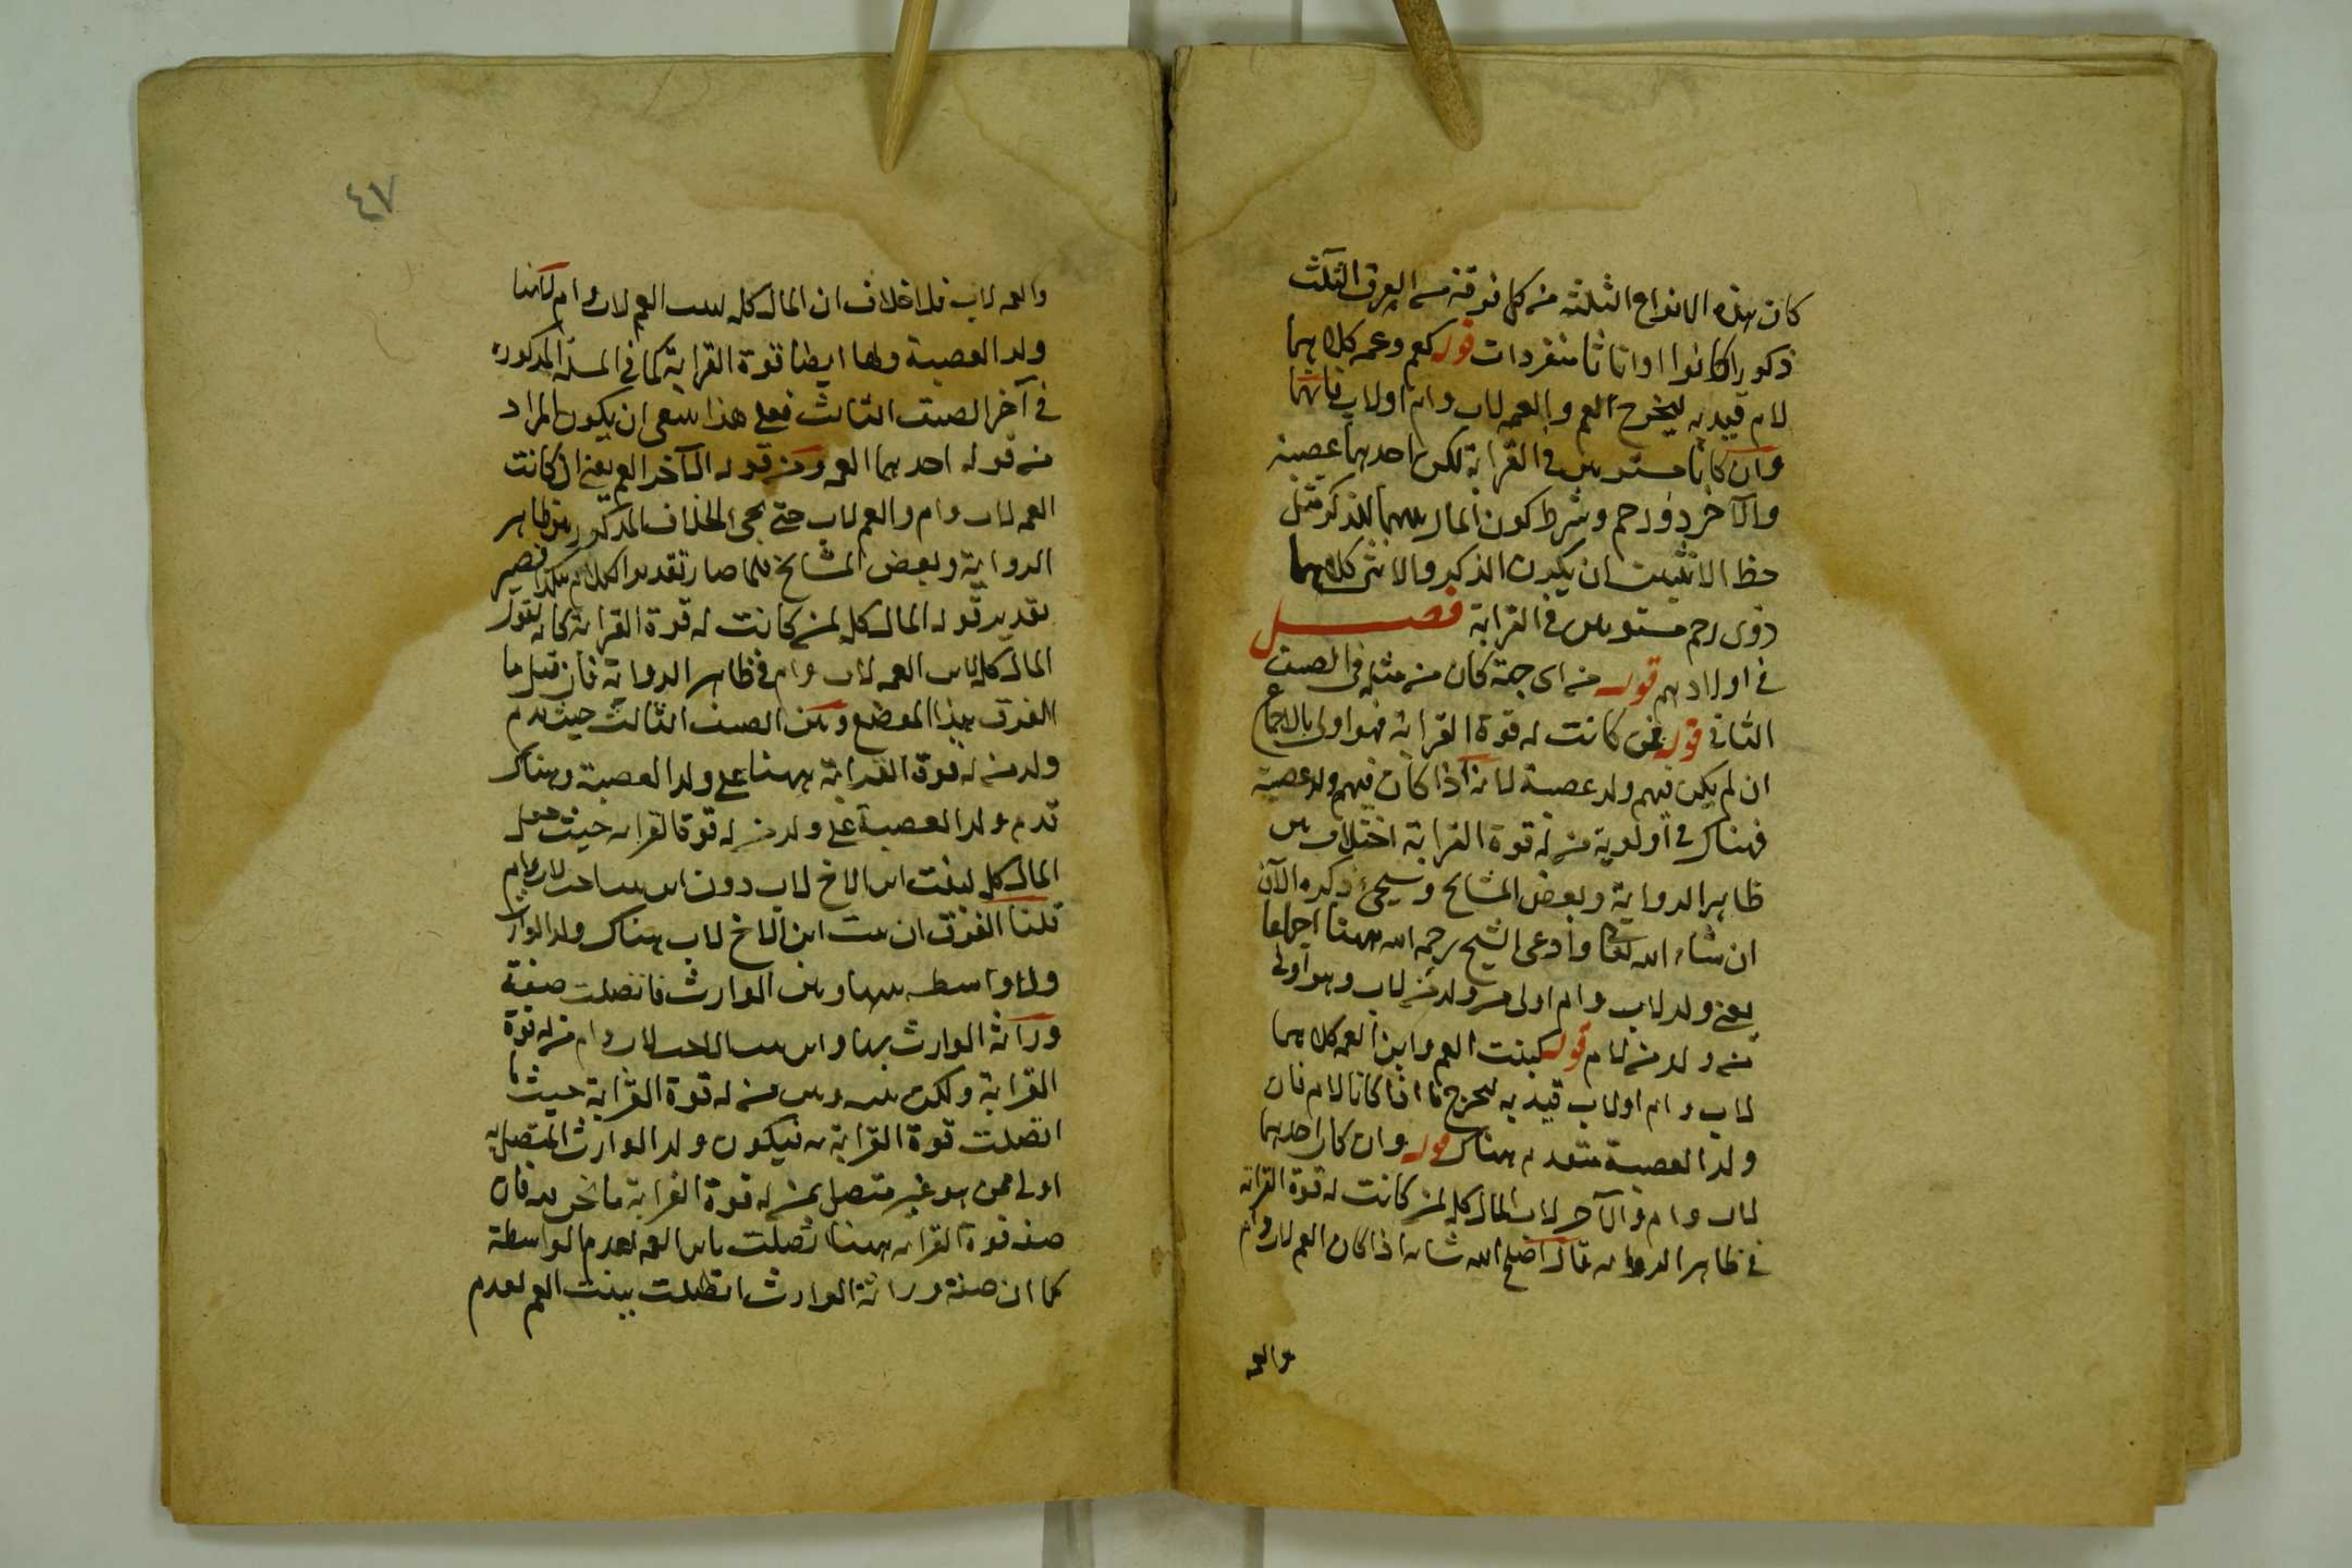 كانت هذه الانواع الثلثة من كل فرقة من الفرق الثلث
ذكورا كانوا او اناثا منفردات قوله كعم وعمة كلاهما
لام قيد به ليخرج العم والعمة لاب وام او لاب فانهما
وان كانا مستويين في القرابة لكن احدهما عصبة
والآخر ذو رحم وشرط كون المال بينهما للذكر مثل
حظ الانثيين ان يكون الذكر والانثى كلاهما
ذوى رحم مستويين في القرابة فصل
في اولادهم قوله من اى جهة كان من مثله في الصنف
الثانى قوله فمن كانت له قوة القرابة فهو اولى بالاجماع
ان لم يكن فيهم ولد عصبة لانه اذا كان فيهم ولد عصبة
فهناك في اولوية من له قوة القرابة اختلاف بين
ظاهر الرواية وبعض المشايخ وسيجئ ذكره الآن
ان شاء الله تعالى وادعى الشيخ رحمه الله ههنا اجماعا
يعنى ولد لاب وام اولى من ولد من لاب وهو اولى
من ولد من لام قوله كبنت العم وابن العمة كلاهما
لاب وام او لاب قيد به ليخرج ما اذا كانا لام فان
ولد العصبة متقدم هناك قوله وان كان احدهما
لاب وام والآخر لاب المال كله لمن كانت له قوة القرابة
في ظاهر الرواية قال اصلح الله شانه اذا كان العم لاب وام
والعمة
٤٧
والعمة لاب فلا خلاف ان المال كله لبنت العم لاب وام لانها
ولد العصبة ولها ايضا قوة القرابة كما في المسئلة المذكورة
في آخر الصنف الثالث فعلى هذا ينبغى ان يكون المراد
من قوله احدهما العمة ومن قوله الآخر العم يعنى ان كانت
العمة لاب وام والعم لاب حتى يجئ الخلاف المذكور بين ظاهر
الرواية وبعض المشايخ فلما صار تقدير الكلام هكذا فيصير
تقدير قوله المال كله لمن كانت له قوة القرابة كانه يقول
المال كله لابن العمة لاب وام في ظاهر الرواية فان قيل ما
الفرق بهذا الموضع وبين الصنف الثالث حيث قدم
ولد من له قوة القرابة ههنا على ولد العصبة وهناك
قدم ولد العصبة على ولد من له قوة القرابة حيث جعل
المال كله لبنت ابن الاخ لاب دون ابن بنت اخت لاب وام
قلنا الفرق ان بنت ابن الاخ لاب هناك ولد الوارث
ولا واسطة بينها وبين الوارث فاتصلت صفة
وراثة الوارث بها وابن بنت الاخت لاب وام من له قوة
القرابة ولكن بينه وبين من له قوة القرابة حيث ما
اتصلت قوة القرابة به فيكون ولد الوارث المتصل به
اولى ممن هو غير متصل بمن له قوة القرابة ما نحن فيه فان
صفة قوة القرابة ههنا اتصلت بابن العمة لعدم الواسطة
كما ان صفة وراثة الوارث اتصلت ببنت العم لعدم